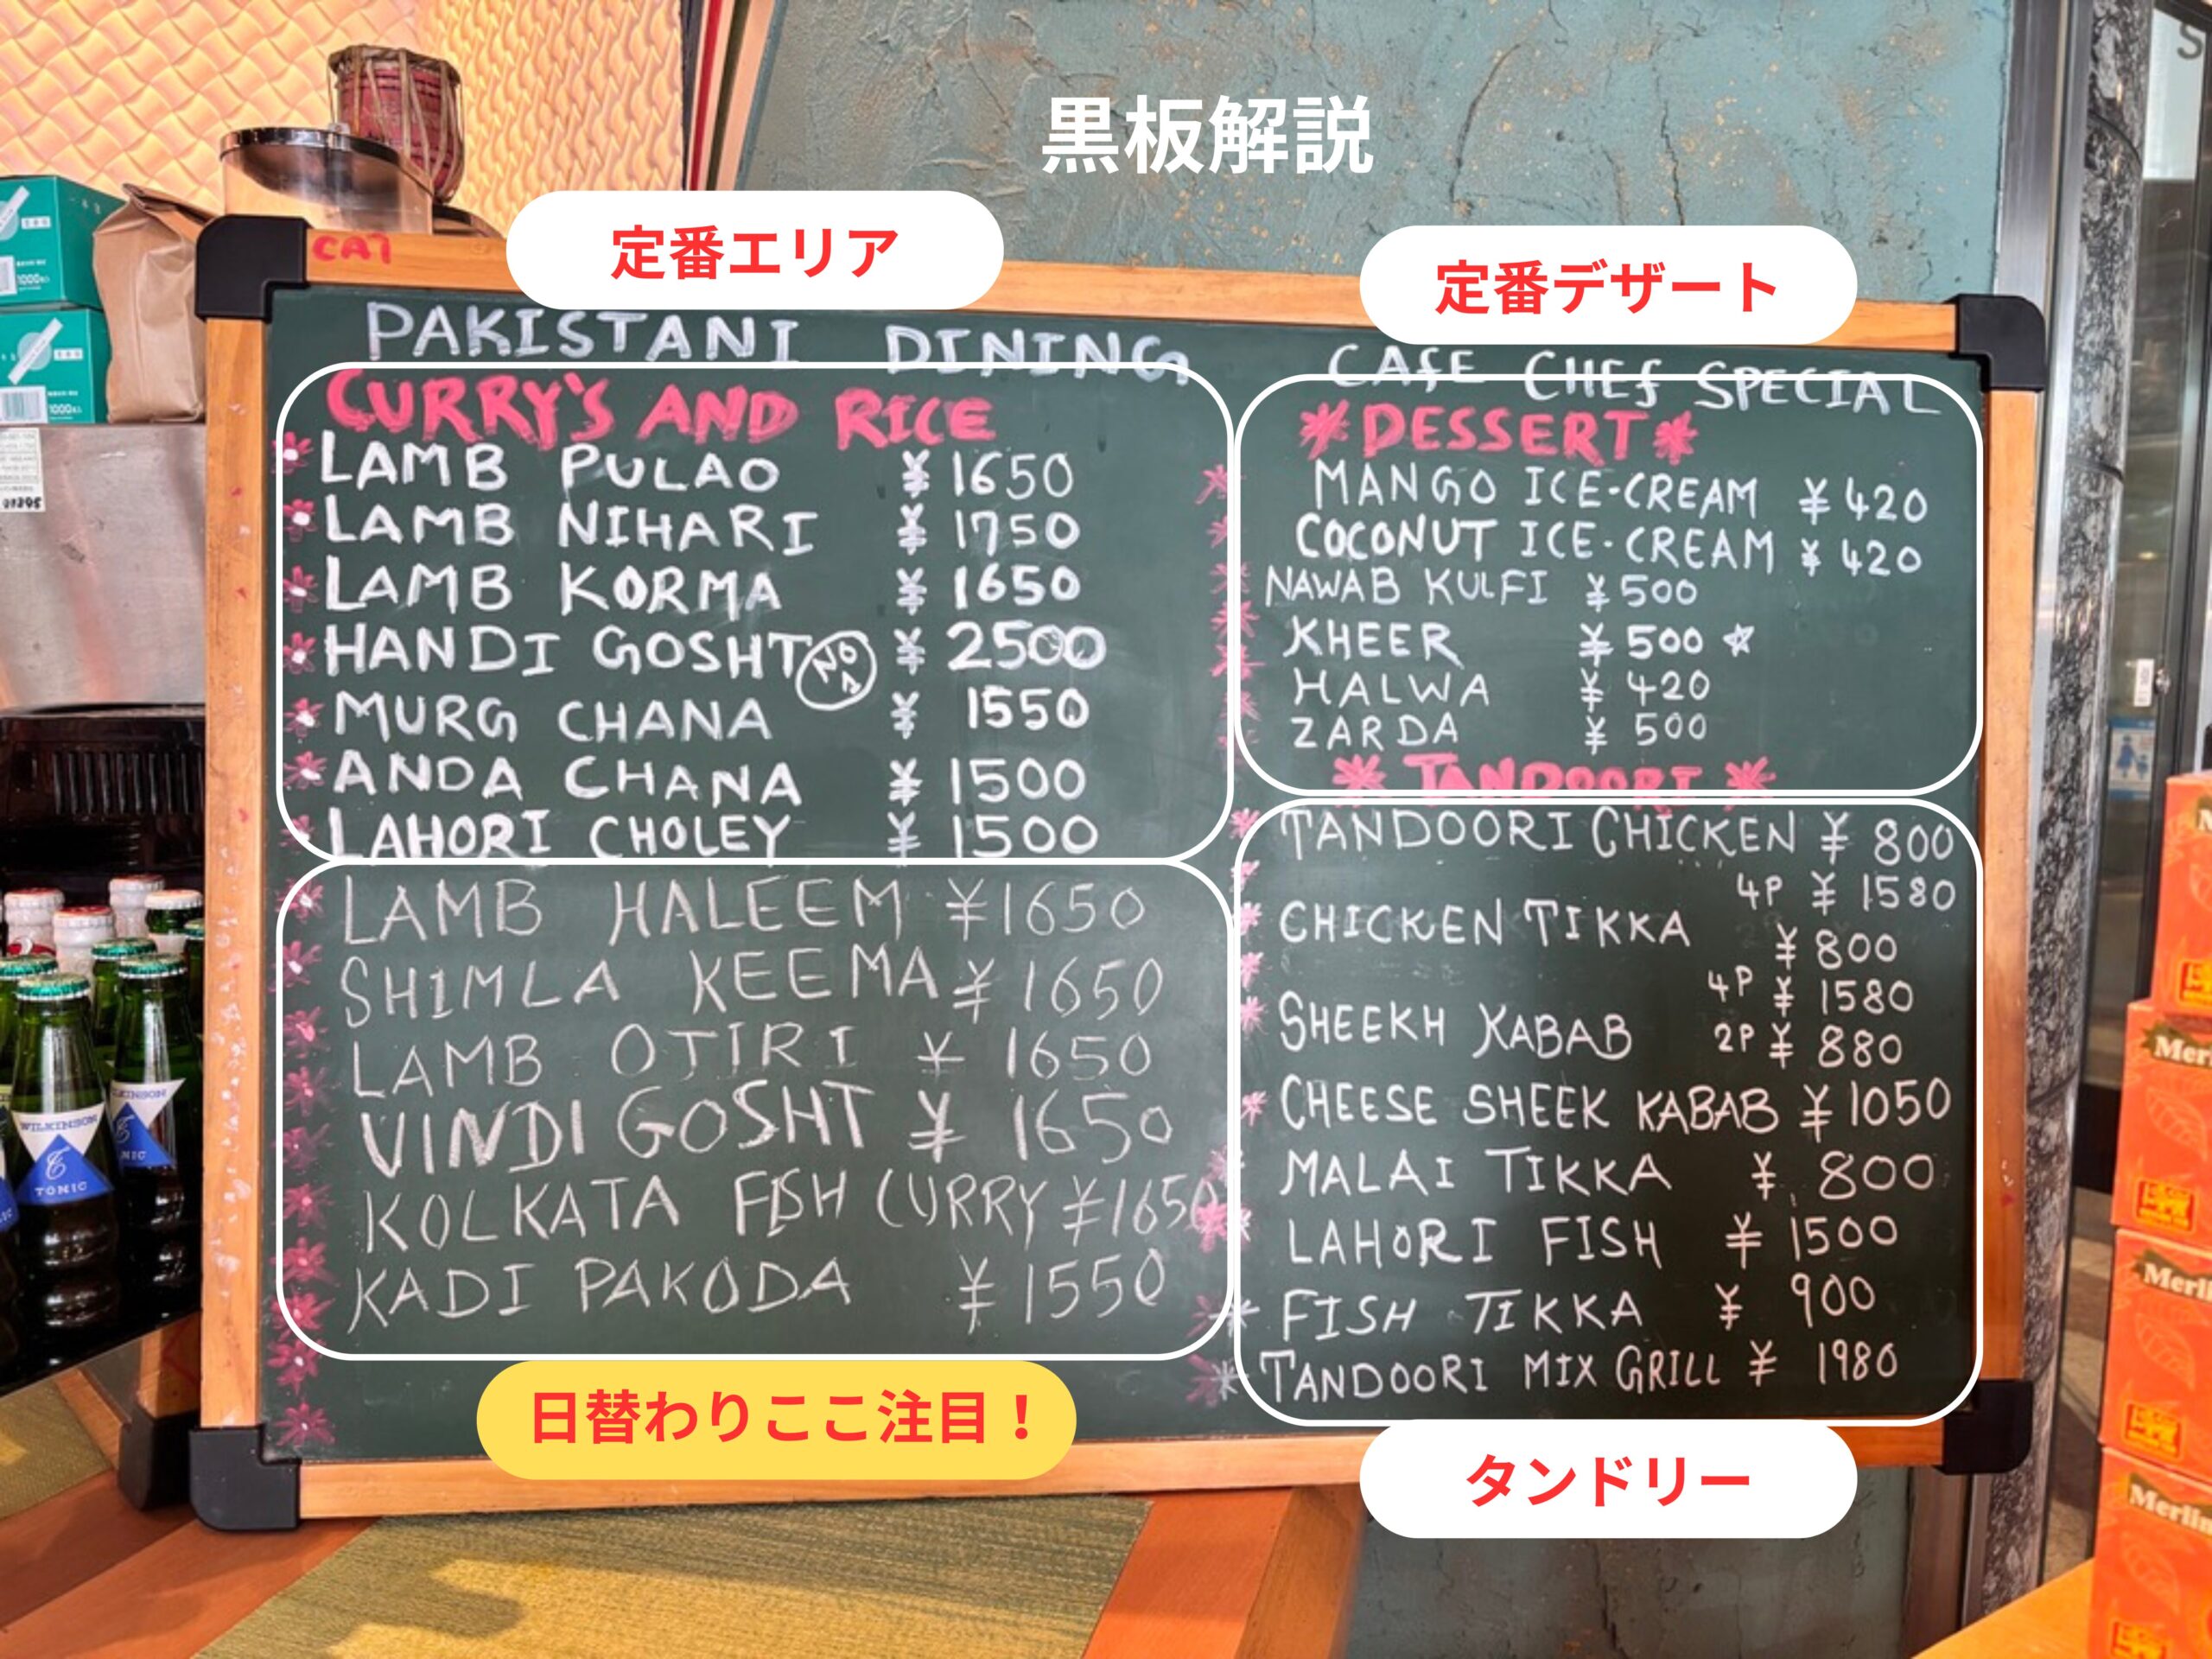 黒板解説
定番エリア
定番デザート
CAT
PAKISTANI DINING
CURRY'S AND RICE
LAMB PULAO ¥1650
LAMB NIHARI ¥1750
LAMB KORMA ¥1650
HANDI GOSHT NO 2 ¥2500
MURG CHANA ¥1550
ANDA CHANA ¥1500
LAHORI CHOLEY ¥1500
LAMB HALEEM ¥1650
SHIMLA KEEMA ¥1650
LAMB OJIRI ¥1650
VINDI GOSHT ¥1650
KOLKATA FISH CURRY ¥1650
KADI PAKODA ¥1550
日替わりここ注目！
CAFE CHEF SPECIAL
*DESSERT*
MANGO ICE-CREAM ¥420
COCONUT ICE-CREAM ¥420
NAWAB KULFI ¥500
KHEER ¥500 ☆
HALWA ¥420
ZARDA ¥500
* TANDOORI *
TANDOORI CHICKEN ¥800
4P ¥1580
CHICKEN TIKKA ¥800
4P ¥1580
SHEEKH KABAB 2P ¥880
CHEESE SHEEK KABAB ¥1050
MALAI TIKKA ¥800
LAHORI FISH ¥1500
FISH TIKKA ¥900
TANDOORI MIX GRILL ¥1980
タンドリー
WILKINSON
TONIC
1000
1000